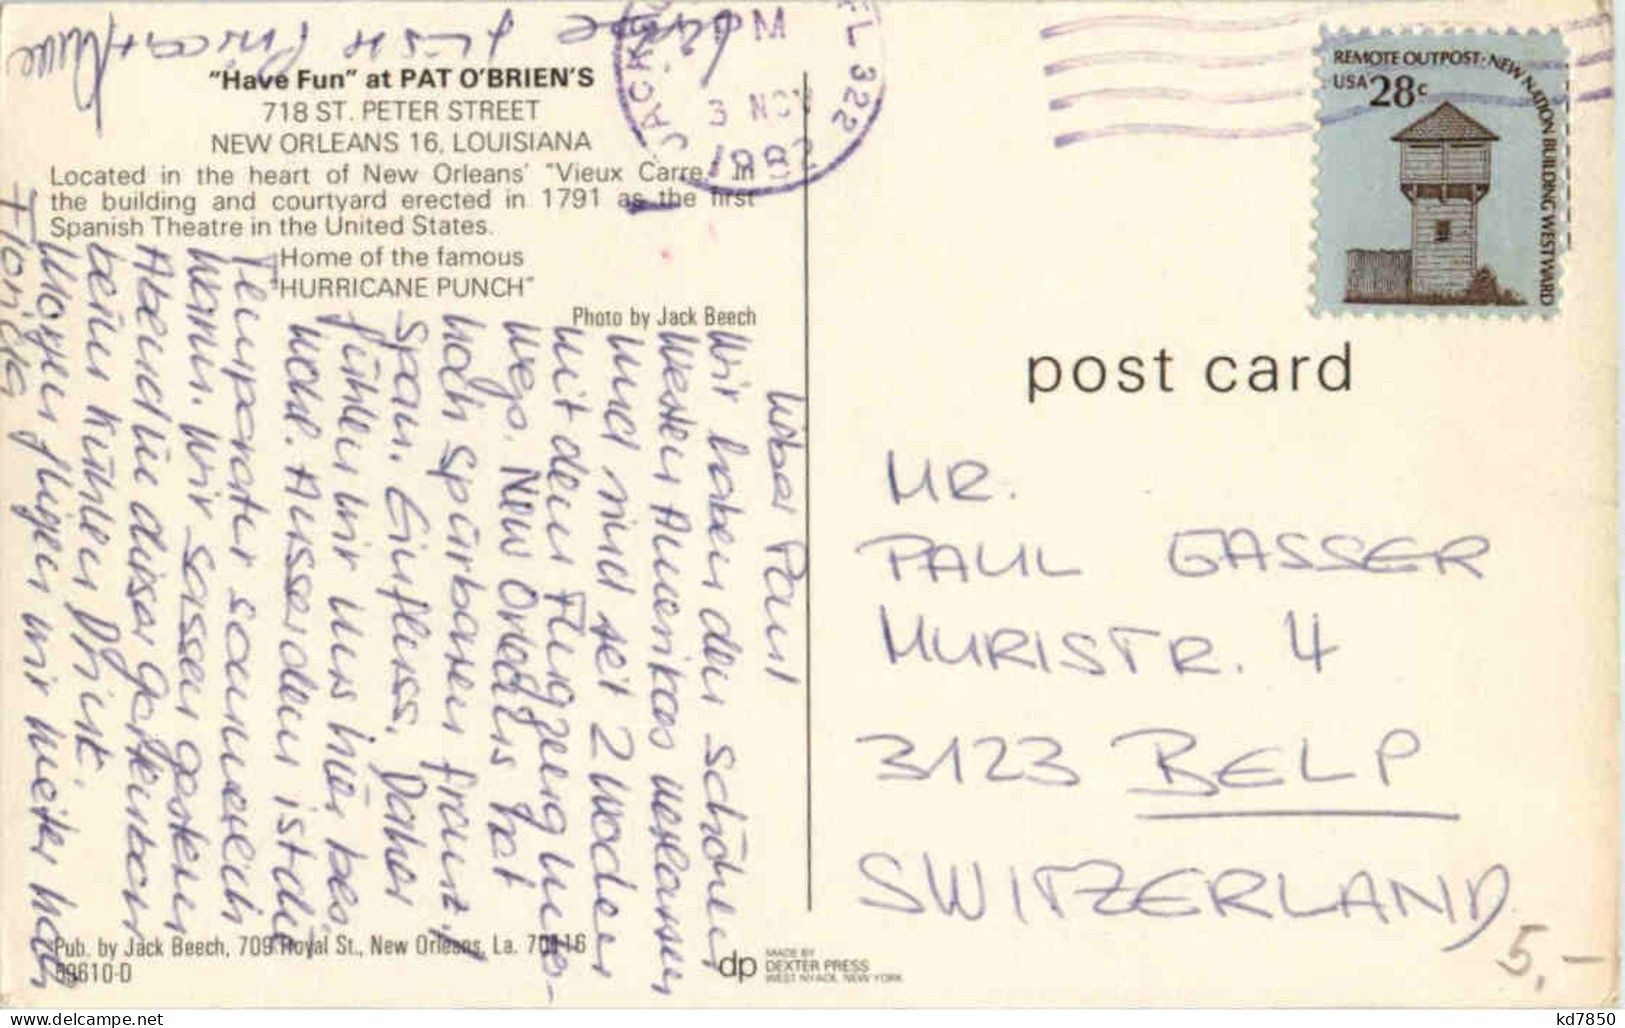 "Have Fun" at PAT O'BRIEN'S
718 ST. PETER STREET
NEW ORLEANS 16, LOUISIANA
Located in the heart of New Orleans' "Vieux Carre." In
the building and courtyard erected in 1791 as the first
Spanish Theatre in the United States.
Home of the famous
"HURRICANE PUNCH"
Photo by Jack Beech
Lieber Paul
Wir haben den schönen
Westen Amerikas verlassen
und sind seit 2 Wochen
mit dem Flugzeug unter-
wegs. New Orleans hat
noch spürbaren franz. +
span. Einfluss. Daher
fühlen wir uns hier bes.
wohl. Ausserdem ist die
Temperatur sommerlich
warm. Wir sassen gestern
Abend in dieser Gartenbar
beim kühlen Drink.
Morgen fliegen wir weiter nach
Florida
Pub. by Jack Beech, 709 Royal St., New Orleans, La. 70116
69610-D
dp
MADE BY
DEXTER PRESS
WEST NYACK, NEW YORK
JACK
FL 322
PM
3 NOV
REMOTE OUTPOST·NEW NATION BUILDING WESTWARD
USA 28c
post card
MR.
PAUL GASSER
MURISTR. 4
3123 BELP
SWITZERLAND
5,-
kd7850